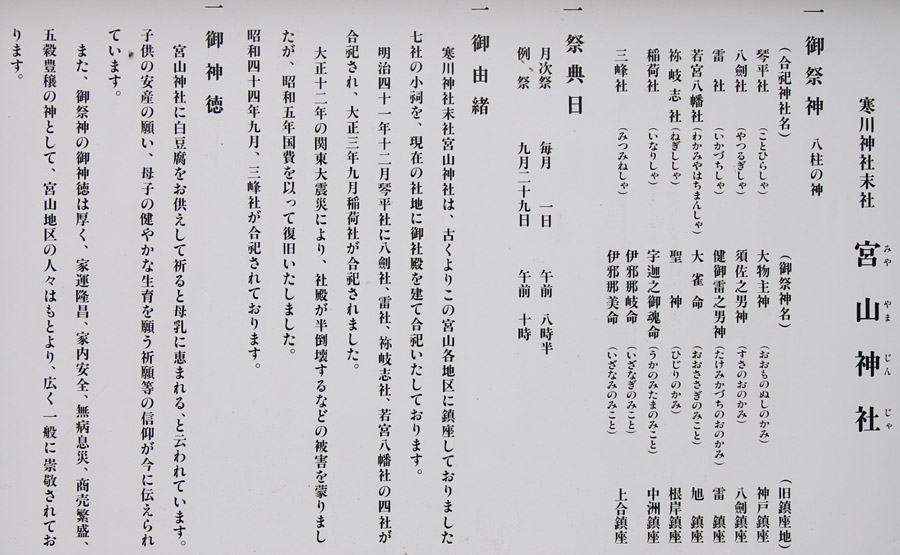 寒川神社末社 宮山神社
みや やま じん じゃ
一 御祭神 八柱の神
(合祀神社名) (御祭神名) (旧鎮座地)
琴平社 (ことひらしゃ) 大物主神 (おおものぬしのかみ) 神戸鎮座
八劍社 (やつるぎしゃ) 須佐之男神 (すさのおのかみ) 八劍鎮座
雷社 (いかづちしゃ) 健御雷之男神 (たけみかづちのおのかみ) 雷鎮座
若宮八幡社 (わかみやはちまんしゃ) 大雀命 (おおささぎのみこと) 旭鎮座
祢岐志社 (ねぎししゃ) 聖神 (ひじりのかみ) 根岸鎮座
稲荷社 (いなりしゃ) 宇迦之御魂命 (うかのみたまのみこと) 中洲鎮座
三峰社 (みつみねしゃ) 伊邪那岐命 (いざなぎのみこと)
伊邪那美命 (いざなみのみこと) 上合鎮座
一 祭典日
月次祭 毎月 一日 午前 八時半
例祭 九月二十九日 午前 十時
一 御由緒
寒川神社末社宮山神社は、古くよりこの宮山各地区に鎮座しておりました
七社の小祠を、現在の社地に御社殿を建て合祀いたしております。
明治四十一年十二月琴平社に八劍社、雷社、祢岐志社、若宮八幡社の四社が
合祀され、大正三年九月稲荷社が合祀されました。
大正十二年の関東大震災により、社殿が半倒壊するなどの被害を蒙りまし
たが、昭和五年国費を以って復旧いたしました。
昭和四十四年九月、三峰社が合祀されております。
一 御神徳
宮山神社に白豆腐をお供えして祈ると母乳に恵まれる、と云われています。
子供の安産の願い、母子の健やかな生育を願う祈願等の信仰が今に伝えられ
ています。
また、御祭神の御神徳は厚く、家運隆昌、家内安全、無病息災、商売繁盛、
五穀豊穣の神として、宮山地区の人々はもとより、広く一般に崇敬されてお
ります。